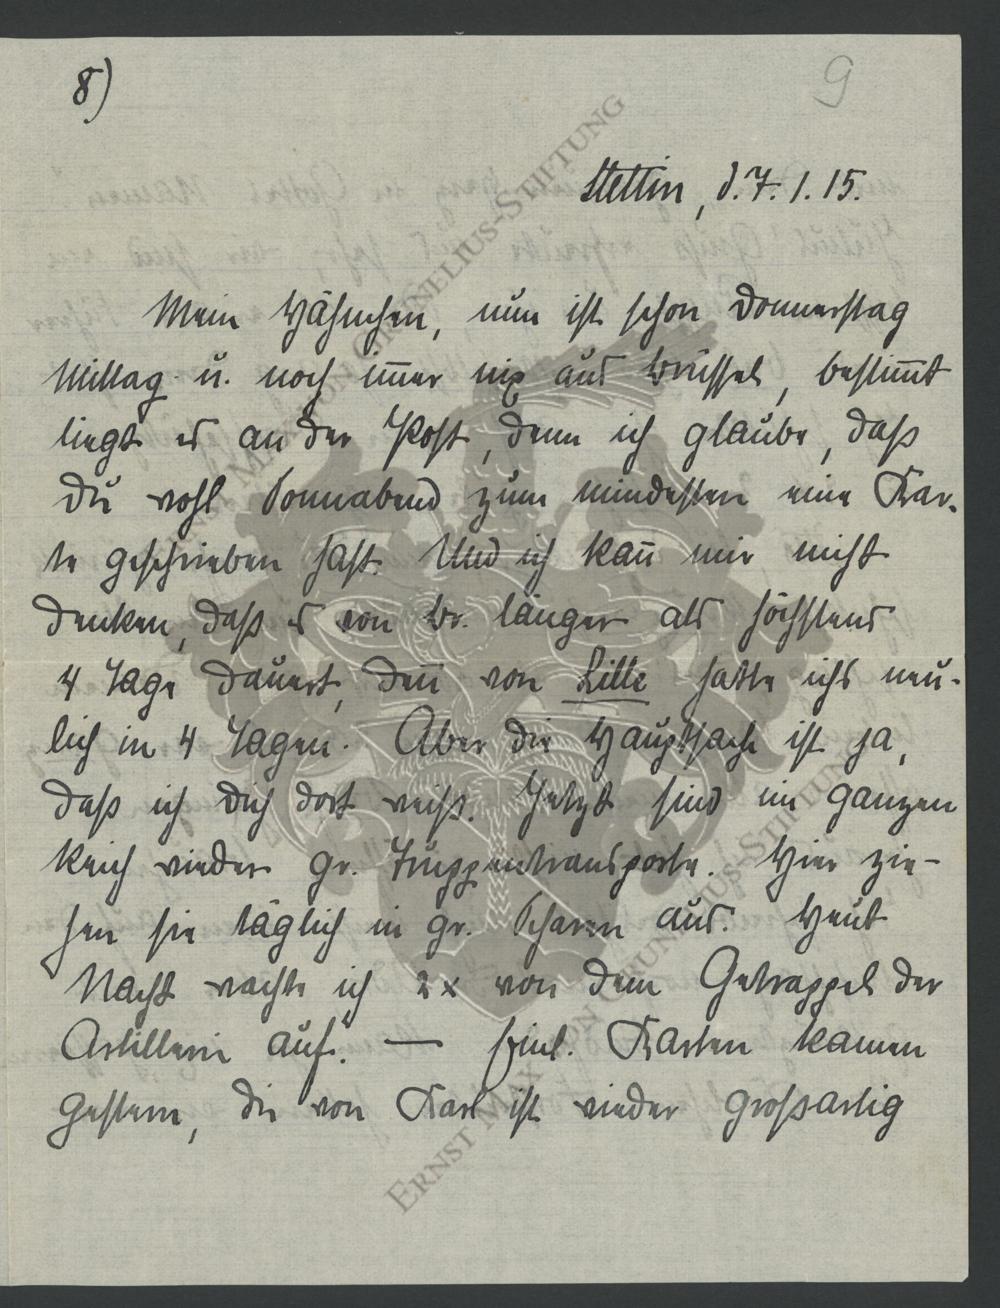 8)
9
Stettin, d. 7. 1. 15.
Mein Hähnchen, nun ist schon Donnerstag
Mittag u. noch im̅er nix aus Brüssel, bestim̅t
liegt es an der Post, denn ich glaube, daß
Du wohl Sonnabend zum mindesten eine Kar-
te geschrieben hast. Und ich kan̅ mir nicht
denken, daß es von Br. länger als höchstens
4 Tage dauert, den̅ von Lille hatte ichs neu-
lich in 4 Tagen. Aber die Hauptsache ist ja,
daß ich Dich dort weiß. Jetzt sind im ganzen
Reich wieder gr. Truppentransporte. Hier zie-
hen sie täglich in gr. Scharen aus. Heut
Nacht wachte ich 2x von dem Getrappel der
Artillerie auf. — Einl. Karten kamen
gestern, die von Karl ist wieder großartig
ERNST MAX VON GRUNELIUS-STIFTUNG
ERNST MAX VON GRUNELIUS-STIFTUNG